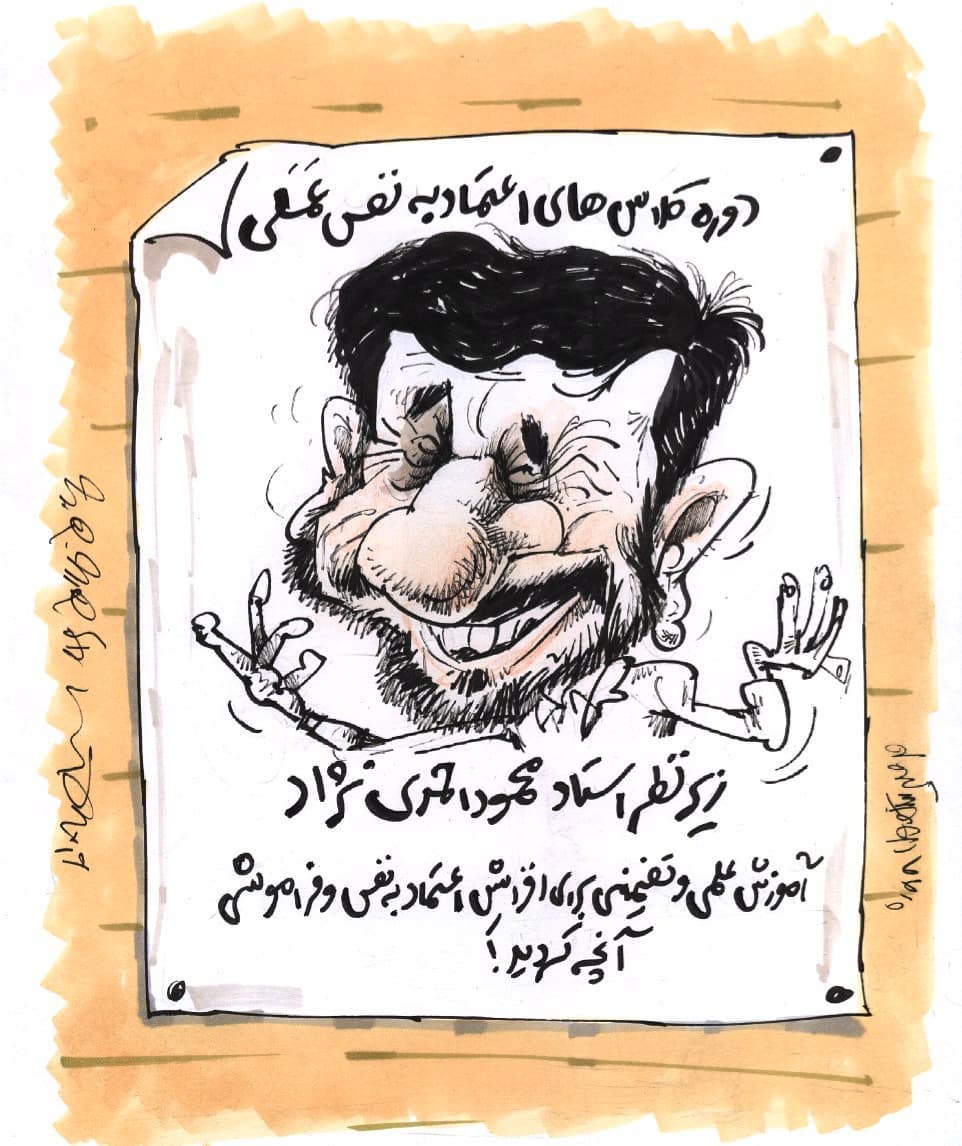 دوره کلاس های اعتماد به نفس عَمَلی
زیر نظر استاد محمود احمدی نژاد
آموزش علمی و تضمینی برای افزایش اعتماد به نفس و فراموشی
آنچه کردید!